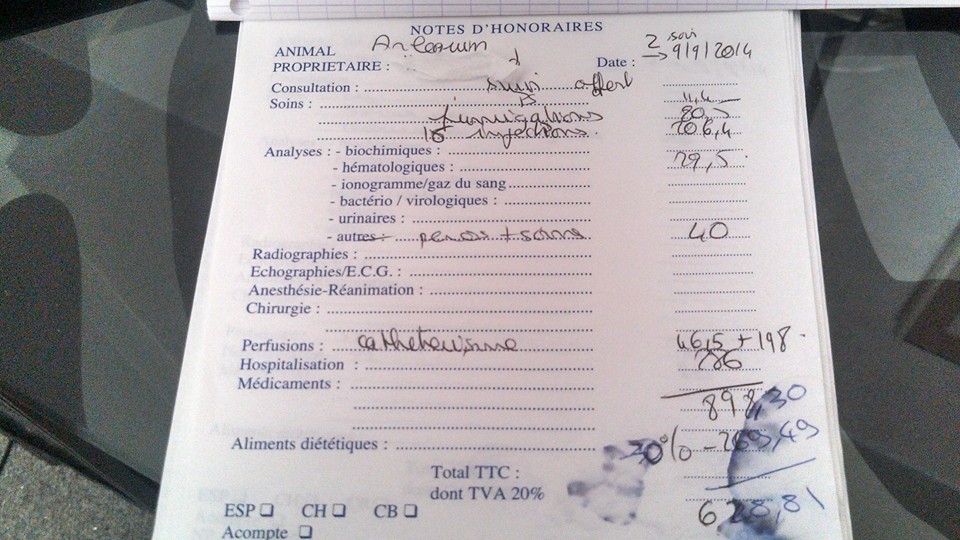 NOTES D'HONORAIRES
ANIMAL
PROPRIETAIRE :
Date : 2 → 9/9/2014
Consultation : suivi offert
Soins :
fumigations 80
15 injections. 106,4
Analyses : - biochimiques :
- hématologiques : 29,5
- ionogramme/gaz du sang
- bactério / virologiques :
- urinaires :
- autres : 40
Radiographies :
Echographies/E.C.G. :
Anesthésie-Réanimation :
Chirurgie :
Perfusions : catheterisme 46,5 + 198
Hospitalisation :
Médicaments :
898,30
Aliments diététiques : 30% - 269,49
Total TTC :
dont TVA 20%
628,81
ESP ❑ CH ❑ CB ❑
Acompte ❑